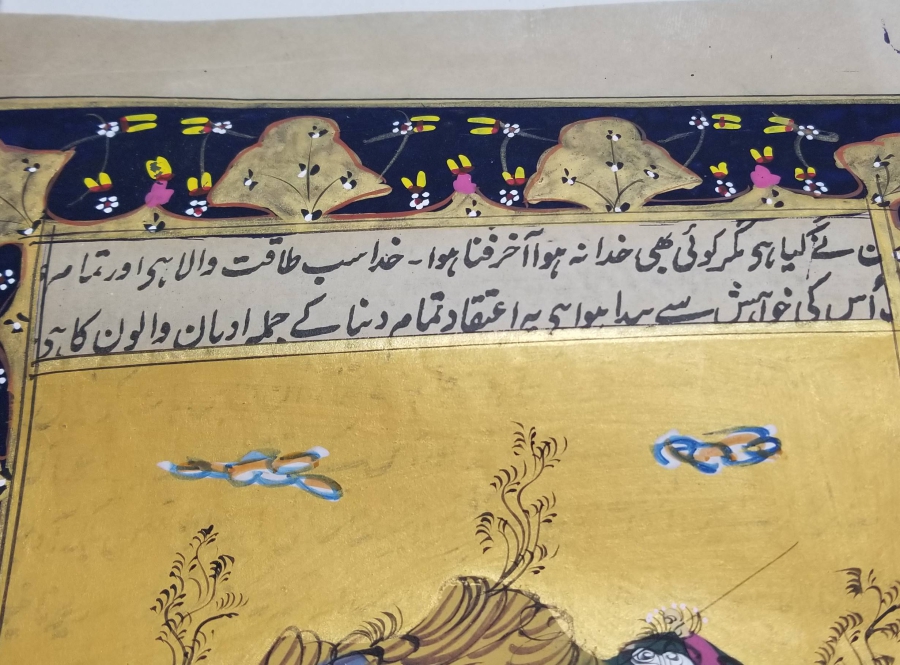 نے گیا ہی مگر کوئی بھی خدا نہ ہوا آخر فنا ہوا ۔ خدا سب طاقت والا ہی اور تمام
اُس کی خواہش سے پیدا ہوا ہی یہ اعتقاد تمام دنیا کے جملہ ادیان والون کا ہی